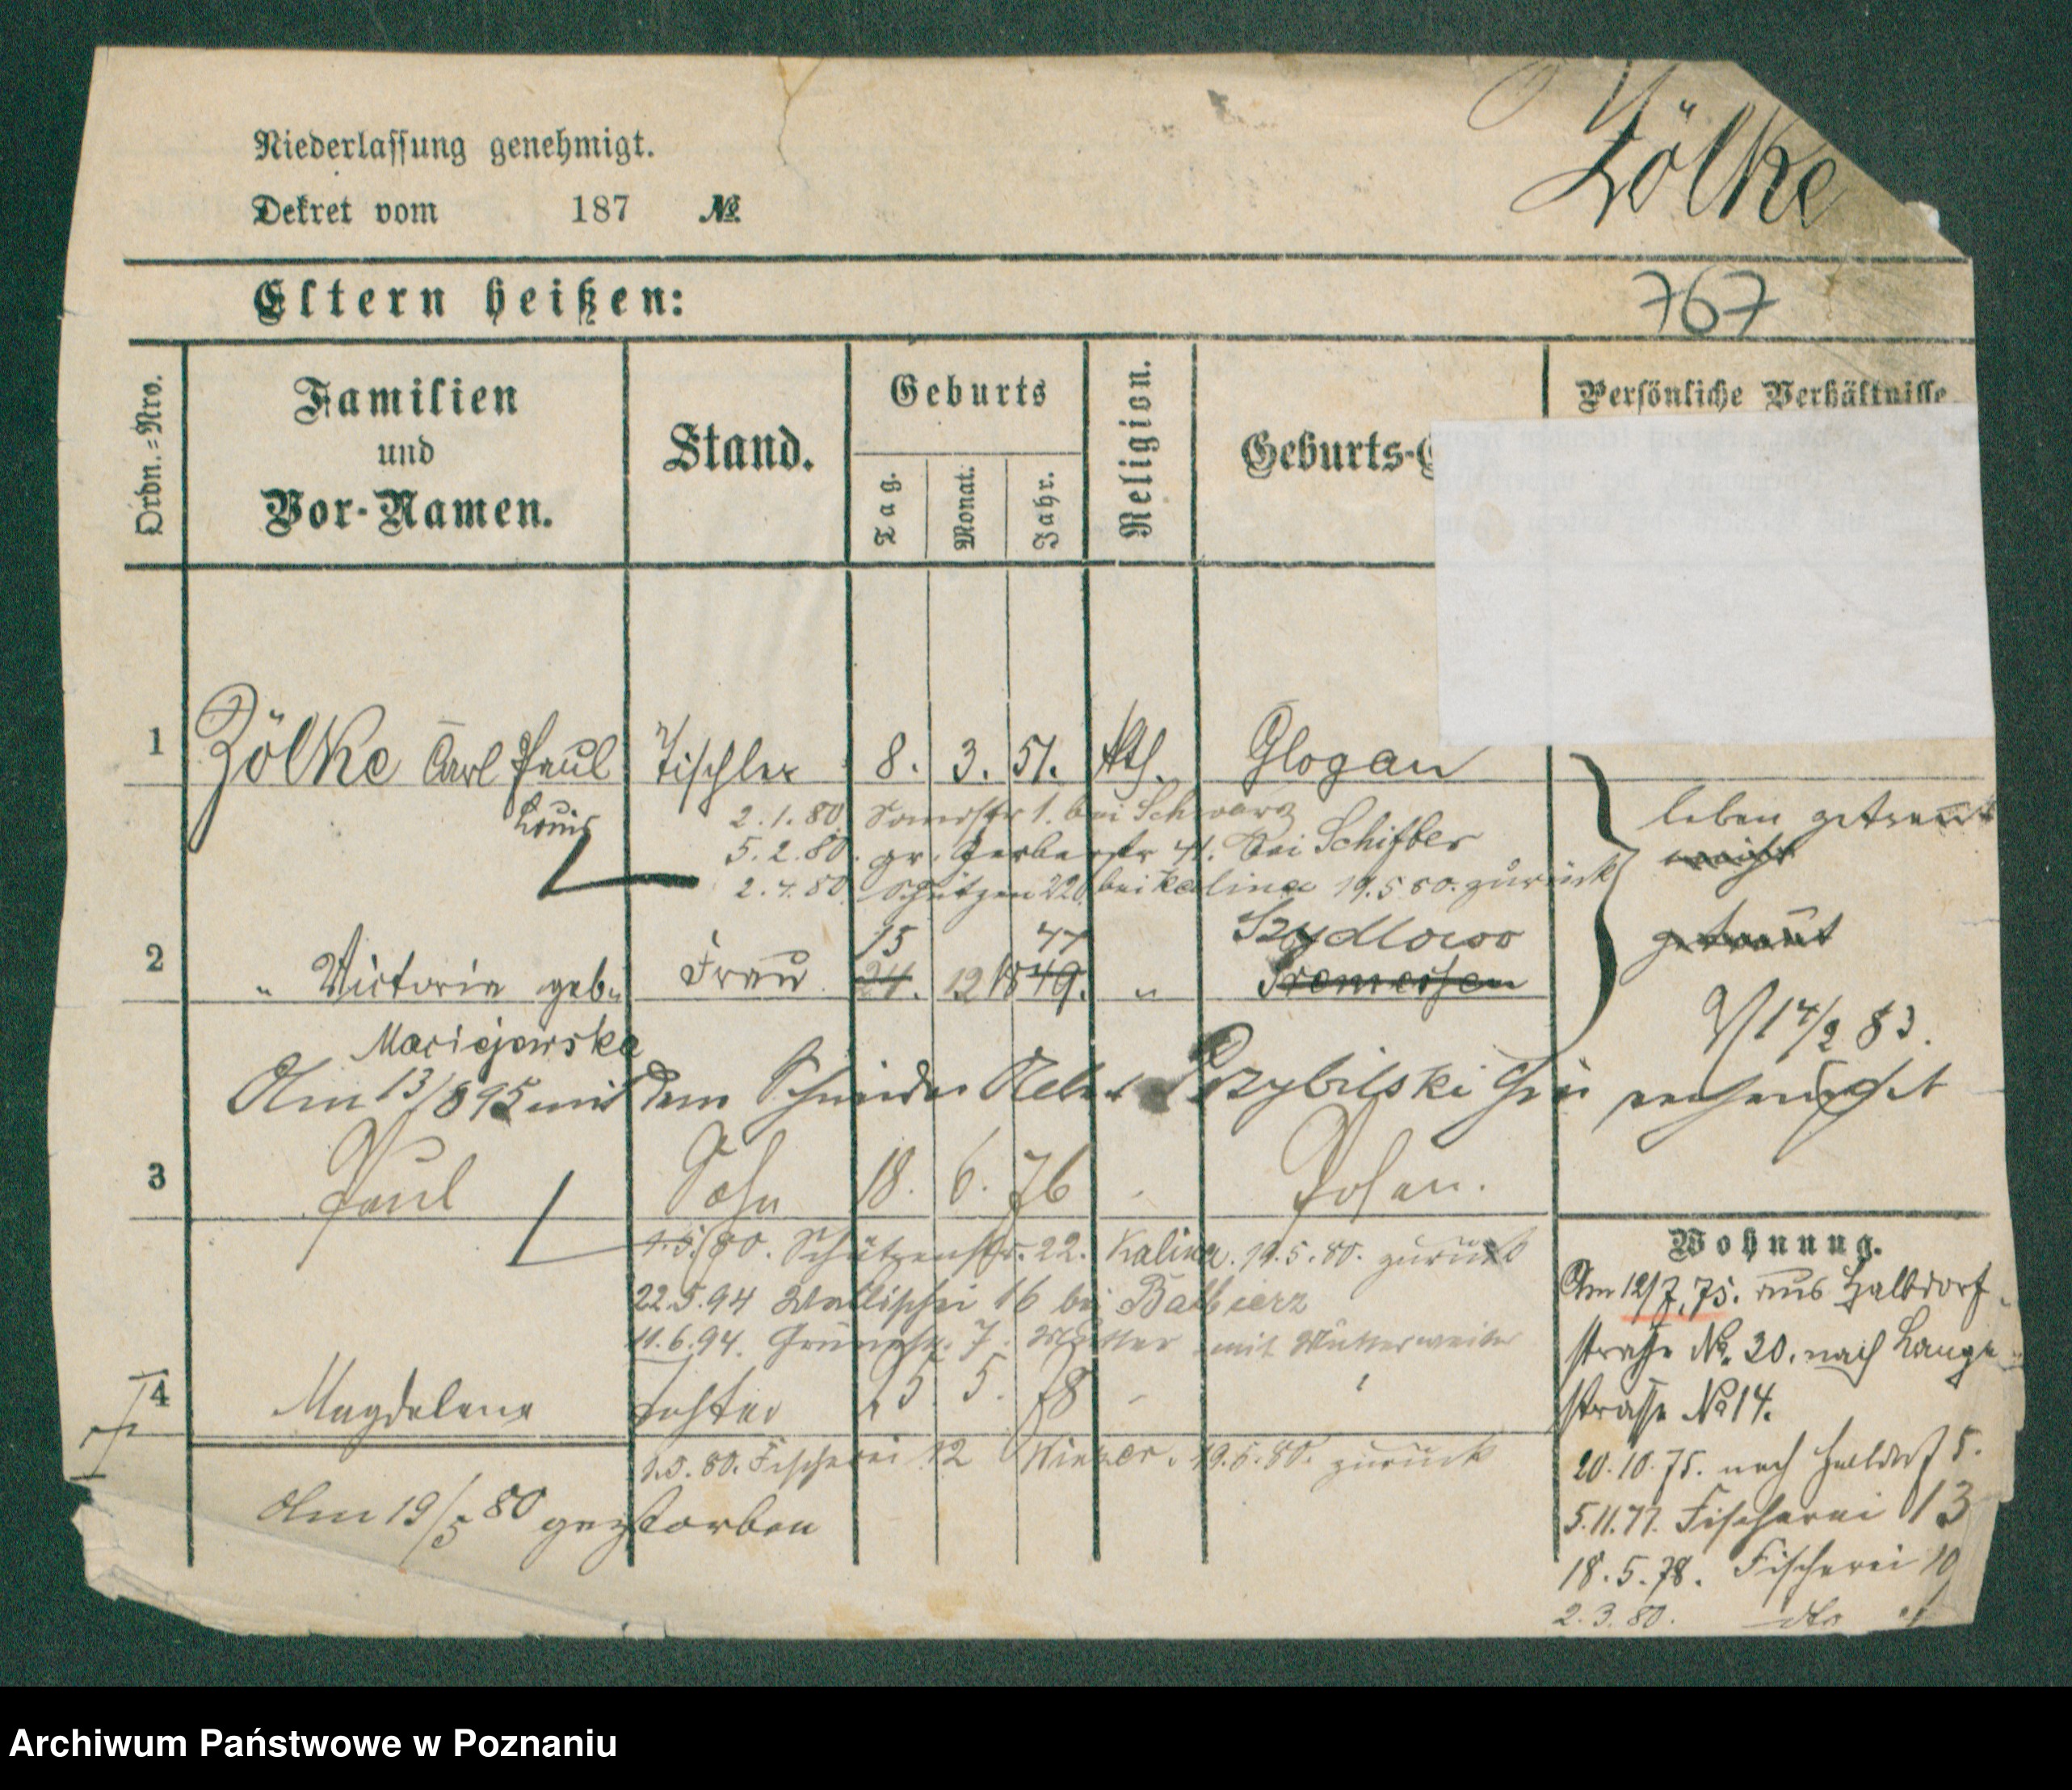 Zölke
Niederlassung genehmigt.
Dekret vom 187 №
Eltern heißen:
767
Ordn.=Nro.
Familien
und
Vor-Namen.
Stand.
Geburts
Tag.
Monat.
Jahr.
Religion.
Geburts-
Persönliche Verhältnisse
1 Zölke Carl Paul Tischler 8. 3. 51. kth. Glogau
Louis
2.1.80 bei Schwarz
5.2.80. gr. Gerberstr 41. bei Schifter
2.4.80. Schützen 22 bei Kalina 19.5.80. zurück
leben getrennt
nicht
getraut
15 47 Szydlowo
2 " Victoria geb. Frau 24. 12 1849. " Tremessen
Maciejewska
V 17/2 83.
Am 13/8 95 mit dem Schneider Przybilski hier verheirathet
3 Paul Sohn 18. 6. 76 Posen.
1.5.80. Schützenstr. 22. Kalina. 19.5.80. zurück
22.5.94 Wallischei 16 bei Balbierz
11.6.94. 7. Mutter mit
4 Magdalena Tochter 25 5. 78
1.5.80. Fischerei 12 19.5.80. zurück
Am 19/5 80 gestorben
Wohnung.
Am 12/7.75. aus Halbdorf-
straße №. 20. nach Lange-
straße № 14.
20.10.75. nach Halbdorf 5.
5.11.77. Fischerei 13
18.5.78. Fischerei 10
2.3.80. dto